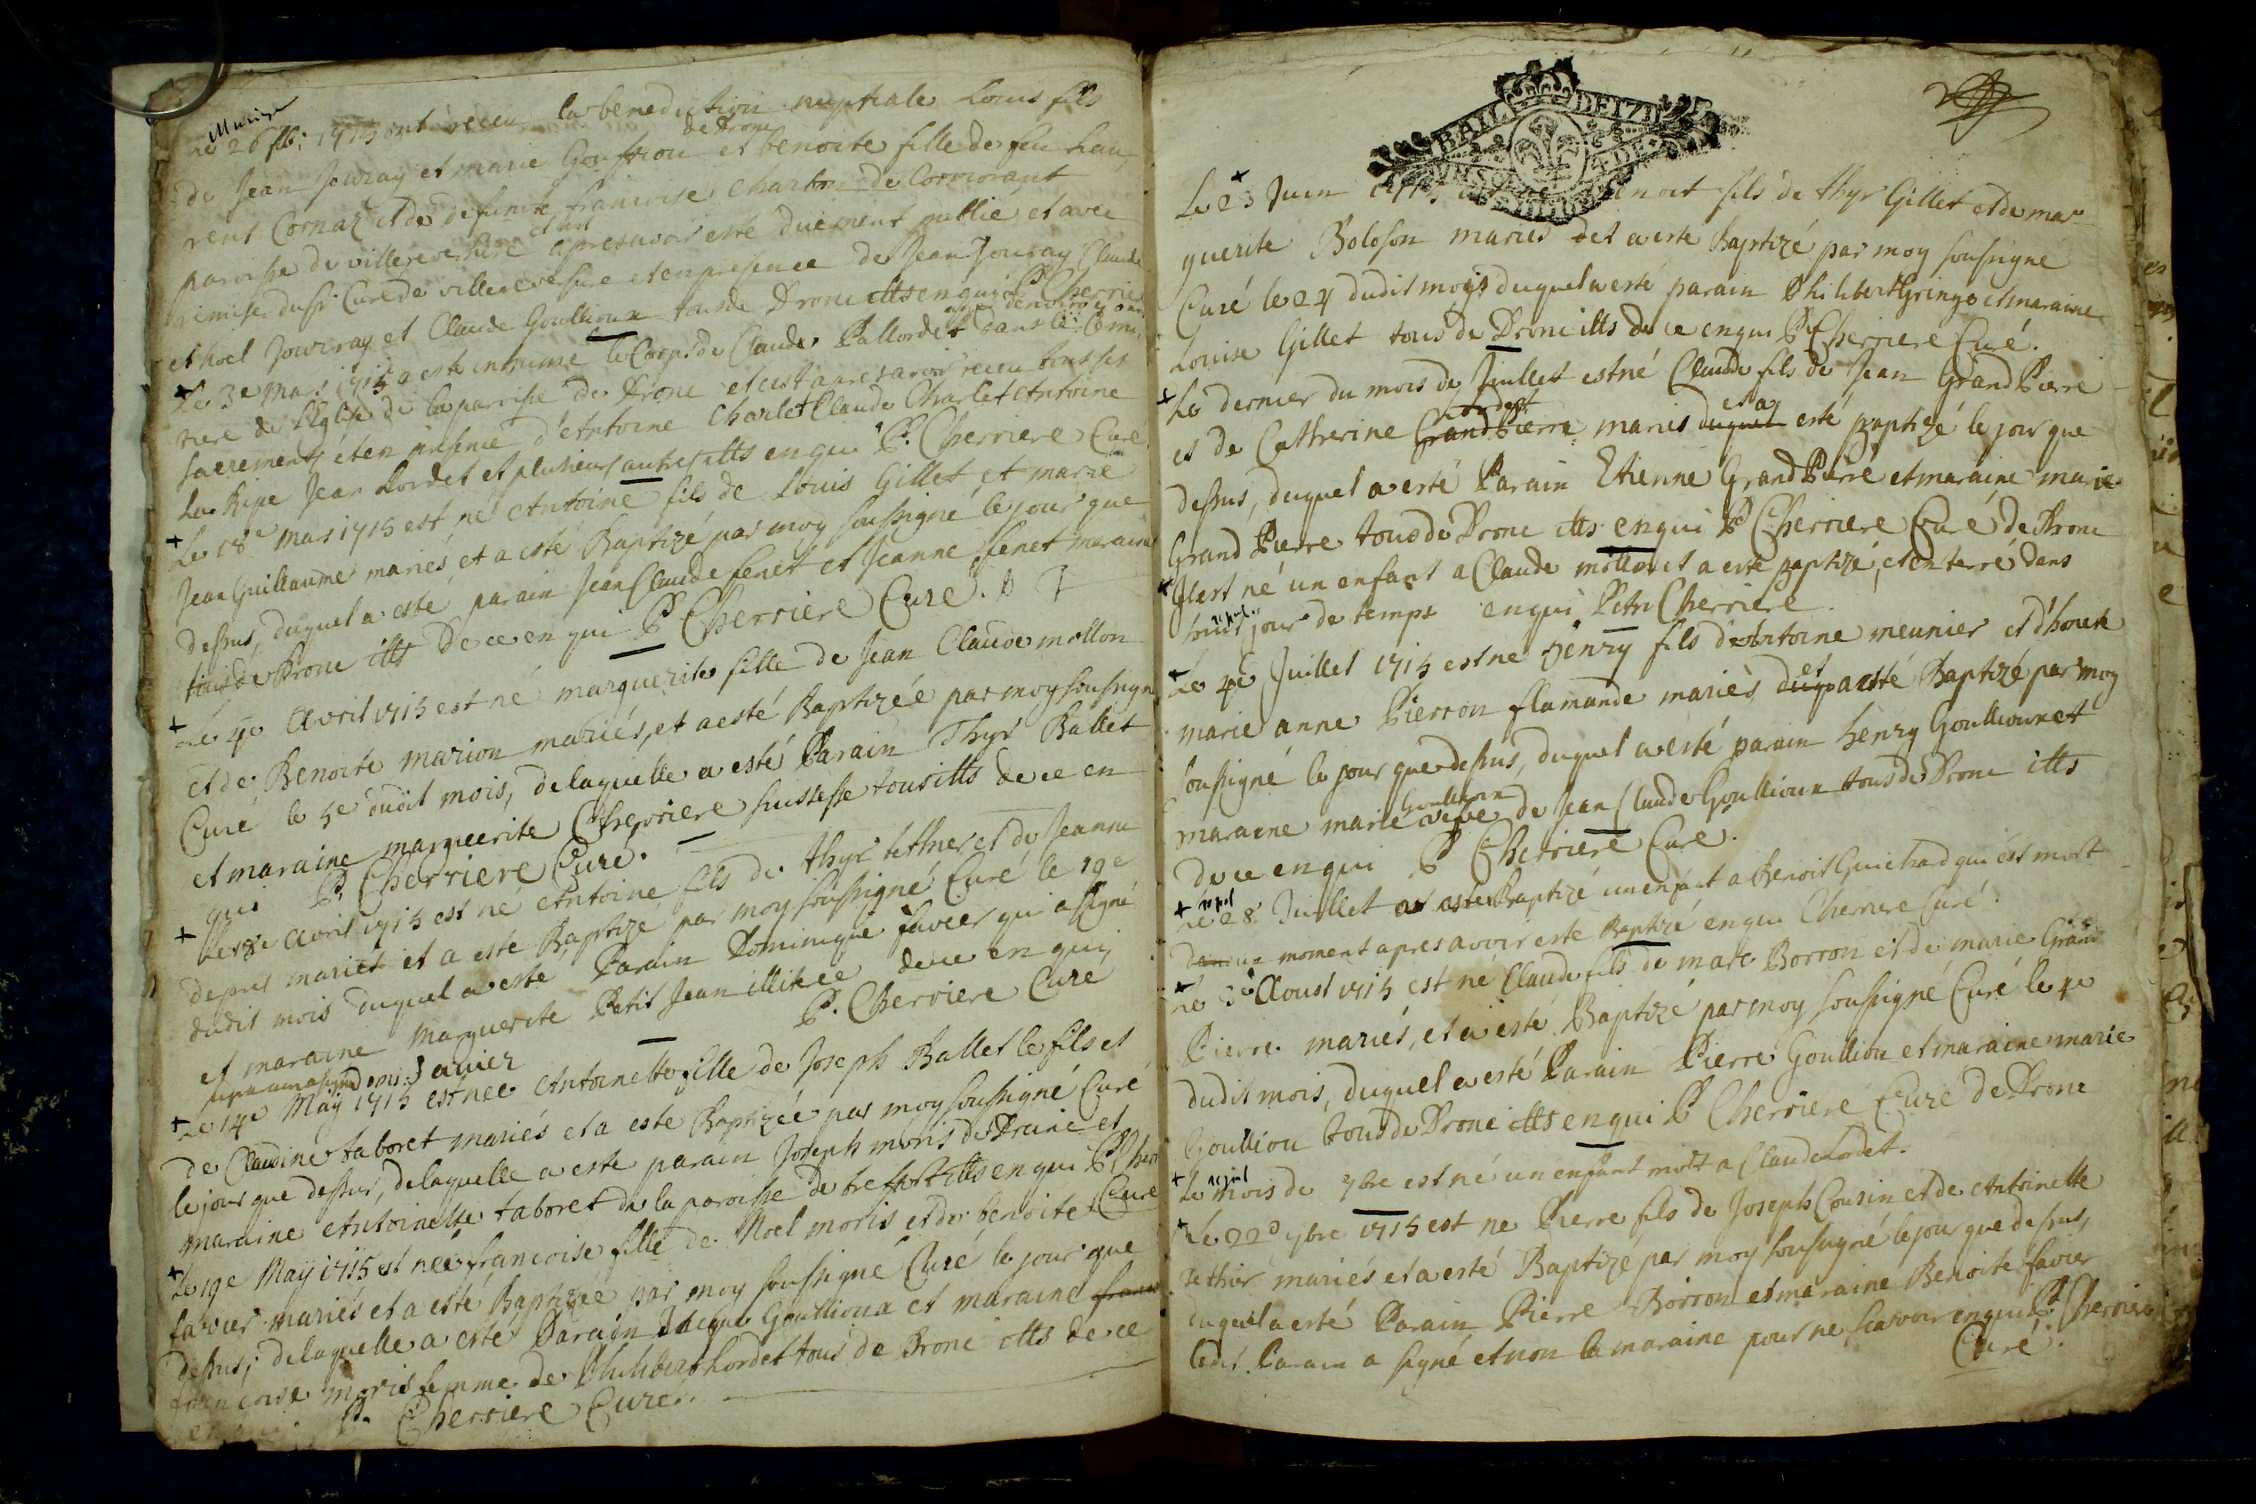 Mariage
Le 26 fb: 1715 ont receu la benediction nuptiale Louis fils
de Jean Jowray et marie Goulliou de Dronc et benoite fille de feu Lau
rent Cornaz et de defuncte francoise Charton de Cormorant
paroisse de villereversure apres avoir esté duement publié et avec
remise du sr Curé de villereversure et en presence de Jean Jouray Claude
et noel Jowray et Claude Goullioux tous de Dronc ills enquis P. Cherriere
Le 3e mars 1715 a esté inhumé le Corps de Claude Pallordet dans le Cemi
tiere de l'Eglise de la paroisse de Dronc et est apres avoir receu tous ses
sacrements et en presence d'Antoine Charlet Claude Charlet Antoine
La Ripe Jean Lordet et plusieurs autres ills enqui P. Cherriere Curé
Le 18e mars 1715 est né Antoine fils de Louis Gillet et marie
Jean Guillaume mariés et a esté Baptizé par moy soussigné le jour que
dessus, duquel a esté parain Jean Claude fenet et Jeanne fenet maraine
tous de Dronc ills de ce en qui P Cherriere Curé.
Le 4e Avril 1715 est né marguerite fille de Jean Claude mollon
et de Benoite marion mariés, et a esté Baptizée par moy soussigné
Curé le 5e dudit mois, de laquelle a esté Parain Thyr Ballet
et maraine marguerite Cherriere tous ills de ce en
qui P. Cherriere Curé.
Le 18e avril 1715 est né Antoine fils de thyr et de Jeanne
depres mariés et a esté Baptizé par moy soussigné Curé le 19e
dudit mois duquel a esté Parain Dominique favier qui a signé
et maraine marguerite Petit Jean illitée de ce en qui
P. Cherriere Curé
Le 14e May 1715 est née Antoinette fille de Joseph Ballet le fils et
de Claudine taboret mariés et a esté Baptizée par moy soussigné Curé
le jour que dessus, de laquelle a esté parain Joseph moris de Dronc et
maraine Antoinette taboret de la paroisse de treffort ills en qui P Cherr
Curé
Le 19e May 1715 est née francoise fille de Noel moris et de benoite
favier mariés et a esté Baptizée par moy soussigné Curé le jour que
dessus, de laquelle a esté Parain Goullioux et maraine
francoise moris femme de Philibert Lordet tous de Dronc ills de ce
P. Cherriere Curé.
BAIL DE 12 D
Le 23 Juin 1715 est né Benoit fils de thyr Gillet et de mar
guerite Boloson mariés et a esté Baptizé par moy soussigné
Curé le 24 dudit mois duquel a esté parain Philibert Gringe et maraine
Louise Gillet tous de Dronc ills de ce en qui P Cherriere Curé.
Le dernier du mois de Juillet est né Claude fils de Jean Grand Pierre
et de Catherine Grand Pierre mariés duquel et a esté baptizé le jour que
dessus, duquel a esté Parain Etienne Grand Pierre et maraine marie
Grand Pierre tous de Dronc ills en qui P Cherriere Curé de Dronc
Il est né un enfant a Claude mollon et a esté baptizé, et enterré dans
huit jour de temps en qui Petri Cherriere
Le 4e Juillet 1715 est né henry fils d'Antoine meunier et d'honete
marie anne Pierron flamande mariés duq et a esté Baptizé par moy
soussigné le jour que dessus, duquel a esté parain henry Goullioux et
maraine marie Goullioux vefve de Jean Claude Goullioux tous de Dronc ills
de ce en qui P Cherriere Curé.
Le 28 Juillet a esté Baptizé un enfant a Benoit Guichard qui est mort
dans un moment apres avoir esté Baptizé en qui Cherriere Curé.
Le 3e Aoust 1715 est né Claude fils de marc Borron et de marie Grand
Pierre mariés, et a esté Baptizé par moy soussigné Curé le 4e
dudit mois, duquel a esté Parain Pierre Goulliou et maraine marie
Goulliou tous de Dronc ills en qui P Cherriere Curé de Dronc
Le mois de 7bre est né un enfant mort a Claude Lordet.
Le 22e 7bre 1715 est né Pierre fils de Joseph Cousin et de Antoinette
mariés et a esté Baptizé par moy soussigné le jour que dessus,
duquel a esté Parain Pierre Borron et maraine Benoite favier
ledit Parain a signé et non la maraine pour ne scavoir enquis P Cherriere
Curé.